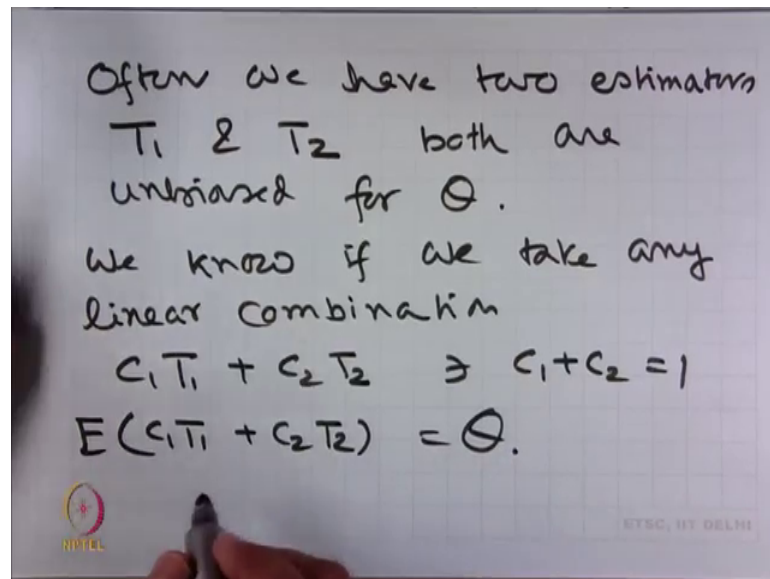 Often we have two estimators
T₁ & T₂ both are
unbiased for θ.
We know if we take any
linear combination
C₁T₁ + C₂T₂ ∋ C₁+C₂ = 1
E(C₁T₁ + C₂T₂) = θ.
NPTEL
ETSC, IIT DELHI